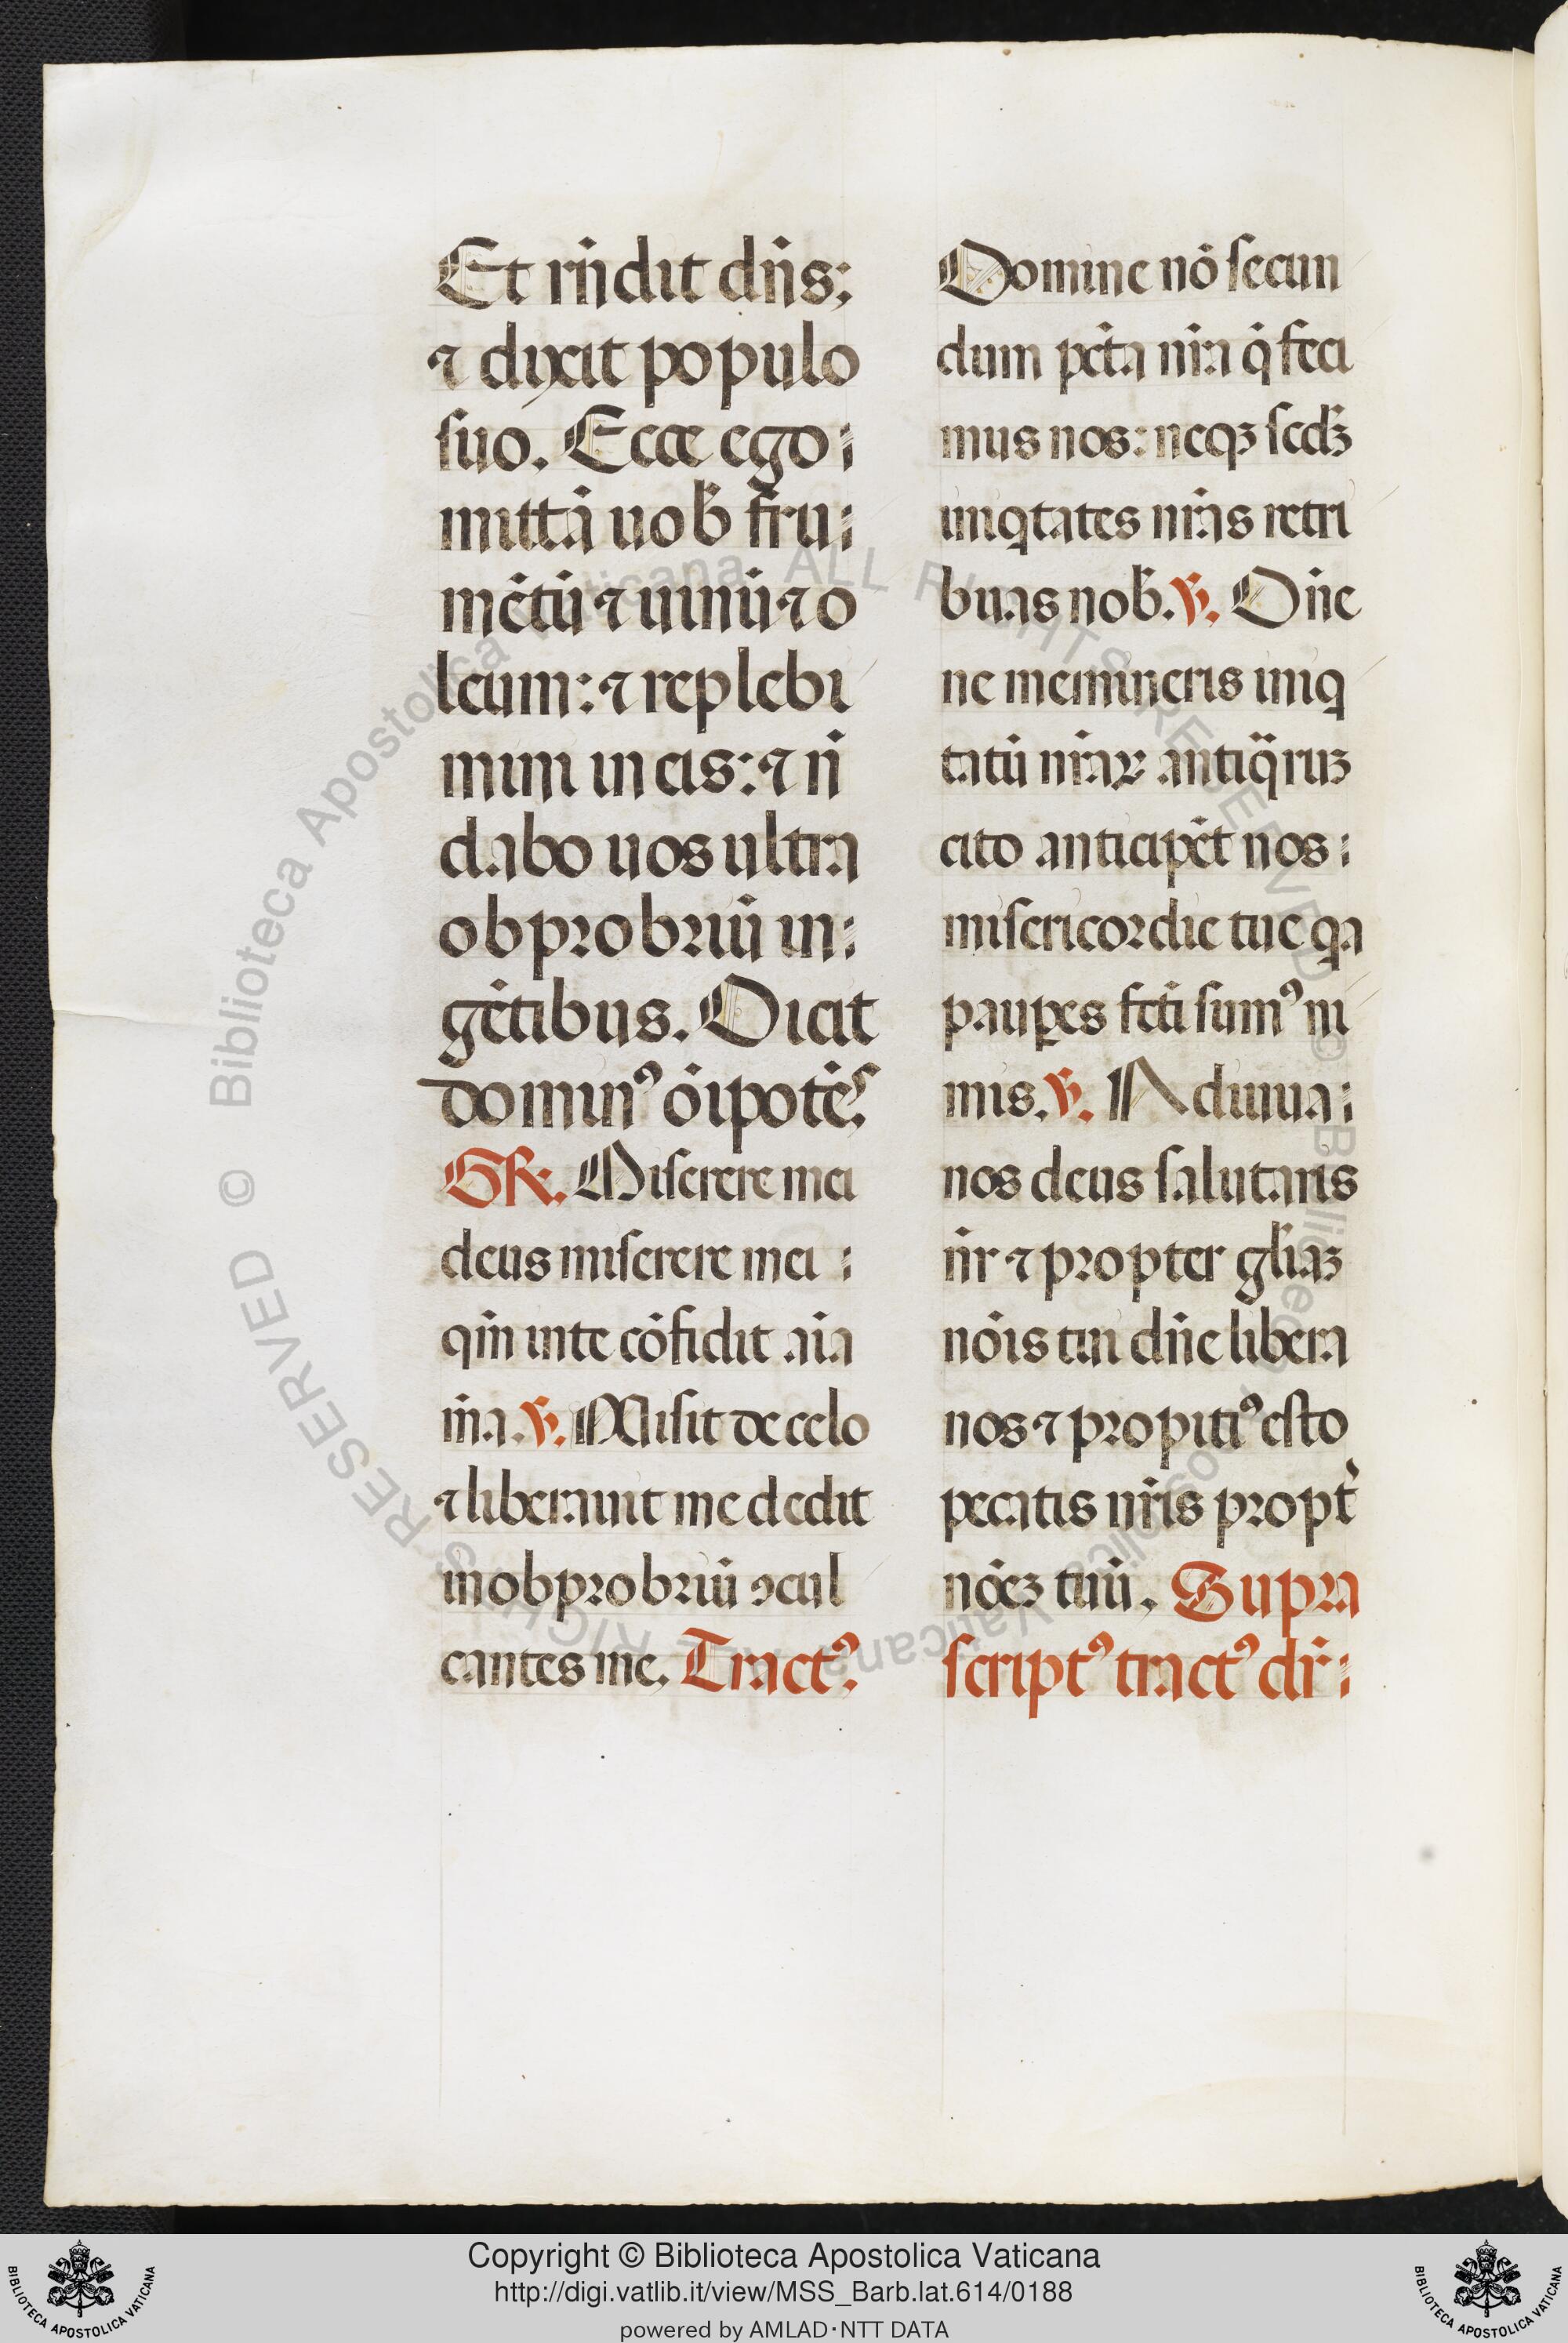 Et rn̄dit dn̄s;
⁊ dixit populo
suo. Ecce ego
mittā uob̄ fru
mētū ⁊ uinū ⁊ o
leum: ⁊ replebi
mini in eis: ⁊ n̄
dabo uos ultra
obprobriū in
gētibus. Dicit
dominꝰ ōipotēs.
GR. Miserere mei
deus miserere mei
qm̄ in te cōfidit aīa
m̄a. ℣. Misit de celo
⁊ liberauit me dedit
in obprobriū ↄcul
cantes me. Tractꝰ.
Domine nō secun
dum pctā nr̄a q̄ feci
mus nos: neqꝫ scdꝫ
iniqtates nr̄as retri
buas nob̄. ℣. Dn̄e
ne memineris iniq
tatū nr̄aꝝ antiq̄ruꝫ
cito anticipēt nos
misericordie tue qa
pauꝑes fcti sumꝰ ni
mis. ℣. Adiuua
nos deus salutaris
nr̄ ⁊ propter glīaꝫ
nōis tui dn̄e libera
nos ⁊ propitiꝰ esto
peccatis nr̄is propt̄
nōeꝫ tuū. Supra
scriptꝰ tractꝰ dr̄
© Biblioteca Apostolica Vaticana ALL RIGHTS RESERVED © Biblioteca Apostolica Vaticana ALL RIGHTS RESERVED
Copyright © Biblioteca Apostolica Vaticana
http://digi.vatlib.it/view/MSS_Barb.lat.614/0188
powered by AMLAD·NTT DATA
BIBLIOTECA APOSTOLICA VATICANA
BIBLIOTECA APOSTOLICA VATICANA